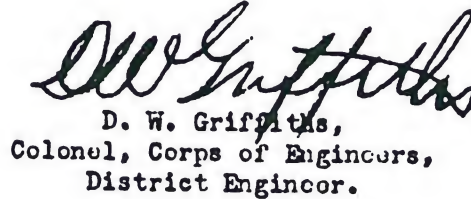 DW Griffiths
D. W. Griffiths,
Colonel, Corps of Engineers,
District Engineer.